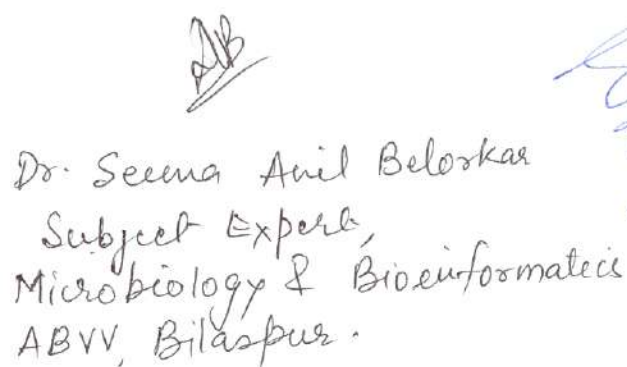 Dr. Seema Anil Belorkar
Subject Expert,
Microbiology & Bioinformatics
ABVV, Bilaspur.